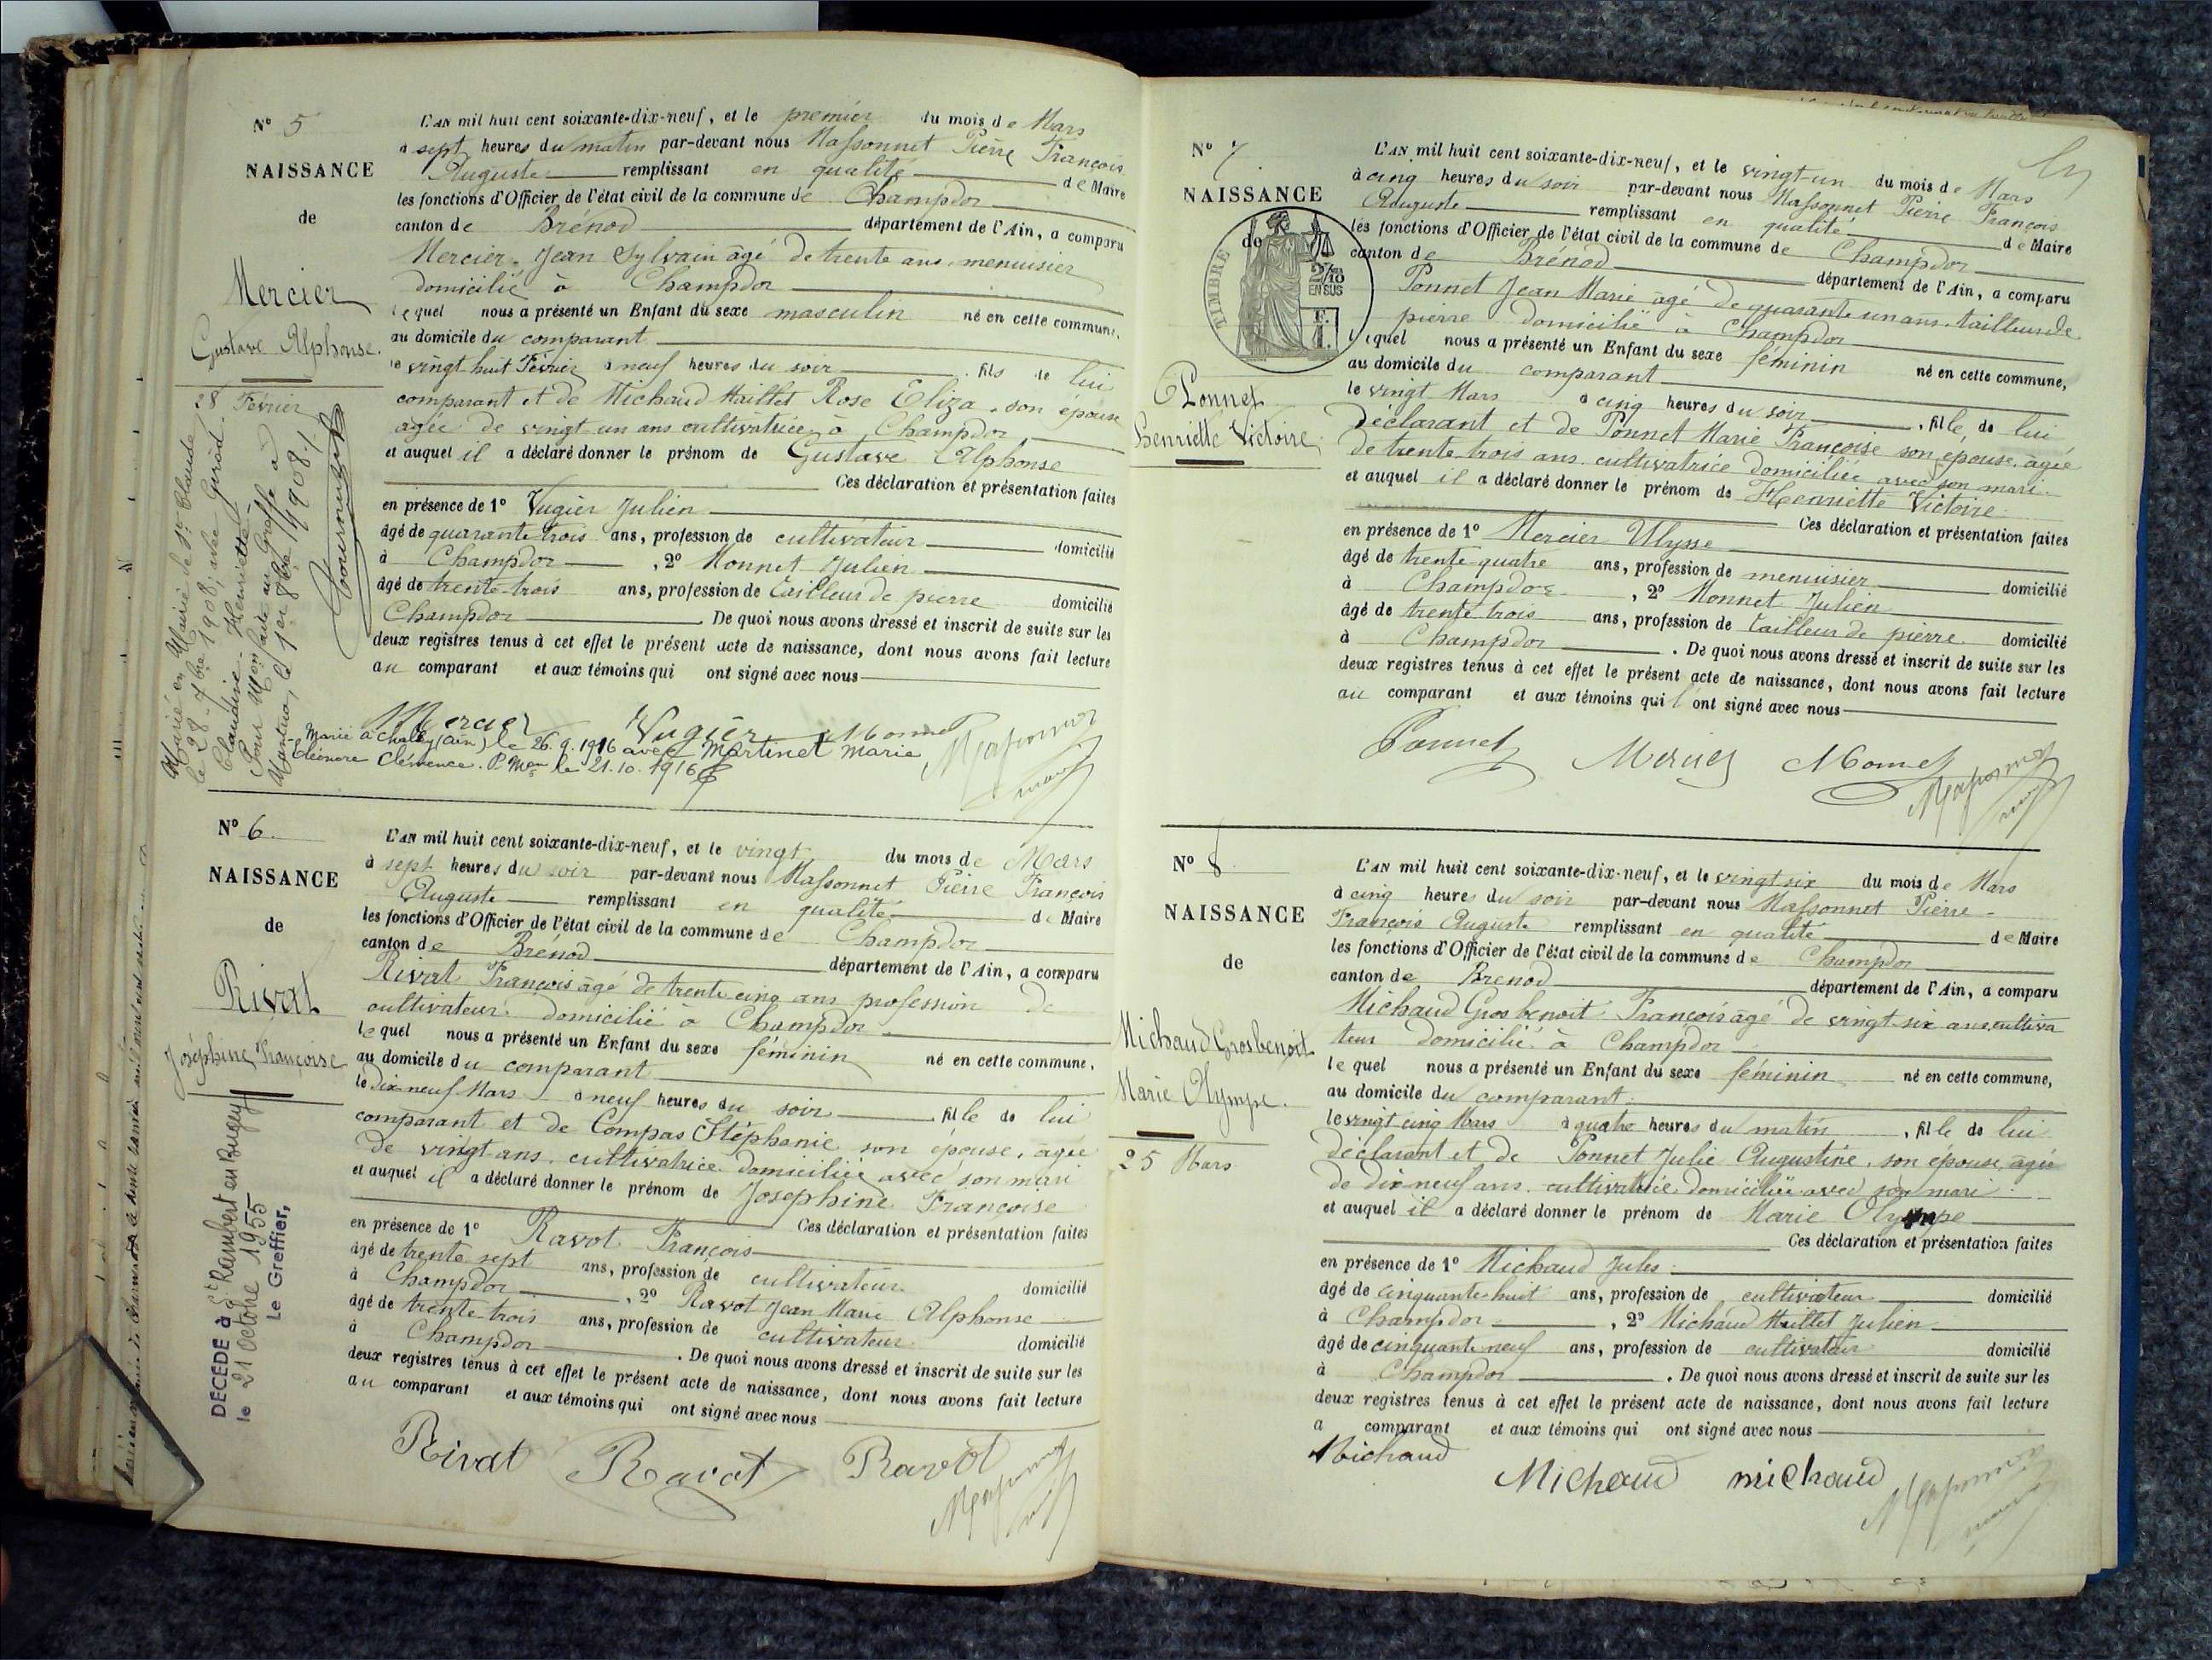 N° 5
NAISSANCE
de
Mercier
Gustave Alphonse.
28 Février
Marié en Mairie de St Claude
le 28 - 7bre 1908, avec Girod
Claudine - Henriette
Pour Mon faite au Greffe à
Nantua, le 1er 8bre 1908 !
L'AN mil huit cent soixante-dix-neuf, et le premier du mois de Mars
à sept heures du matin par-devant nous Massonnet Pierre François
Auguste remplissant en qualité de Maire
les fonctions d'Officier de l'état civil de la commune de Champdor
canton de Brénod département de l'Ain, a comparu
Mercier Jean Sylvain âgé de trente ans menuisier
domicilié à Champdor
lequel nous a présenté un Enfant du sexe masculin né en cette commune,
au domicile du comparant
le vingt huit Février à neuf heures du soir, fils de lui
comparant et de Michaud Maillet Rose Eliza, son épouse
agée de vingt-un ans cultivatrice à Champdor
et auquel il a déclaré donner le prénom de Gustave Alphonse
Ces déclaration et présentation faites
en présence de 1° Vugier Julien
âgé de quarante trois ans, profession de cultivateur domicilié
à Champdor, 2° Monnet Julien
âgé de trente-trois ans, profession de tailleur de pierre domicilié
Champdor. De quoi nous avons dressé et inscrit de suite sur les
deux registres tenus à cet effet le présent acte de naissance, dont nous avons fait lecture
au comparant et aux témoins qui ont signé avec nous
Mercier Vugier Monnet Massonnet
maire
Marié à Chaley (Ain) le 26.9.1916 avec Martinet Marie
Eléonore Clémence. P. Mon le 21.10.1916
N° 6.
NAISSANCE
de
Rivat
Joséphine Françoise
DÉCÉDÉ à St Rambert en Bugey
le 21 Octobre 1955
Le Greffier,
L'AN mil huit cent soixante-dix-neuf, et le vingt du mois de Mars
à sept heures du soir par-devant nous Massonnet Pierre François
Auguste remplissant en qualité de Maire
les fonctions d'Officier de l'état civil de la commune de Champdor
canton de Brénod département de l'Ain, a comparu
Rivat François âgé de trente cinq ans profession de
cultivateur domicilié à Champdor
lequel nous a présenté un Enfant du sexe féminin né en cette commune,
au domicile du comparant
le Dix-neuf Mars à neuf heures du soir, fille de lui
comparant et de Compas Stéphanie son épouse, agée
de vingt ans, cultivatrice domiciliée avec son mari
et auquel il a déclaré donner le prénom de Joséphine Françoise
Ces déclaration et présentation faites
en présence de 1° Ravot François
âgé de trente sept ans, profession de cultivateur domicilié
à Champdor, 2° Ravot Jean Marie Alphonse
âgé de trente-trois ans, profession de cultivateur domicilié
à Champdor. De quoi nous avons dressé et inscrit de suite sur les
deux registres tenus à cet effet le présent acte de naissance, dont nous avons fait lecture
au comparant et aux témoins qui ont signé avec nous
Rivat Ravot Ravot Massonnet
N° 7
NAISSANCE
de
TIMBRE
2/10
EN SUS
F.
1.
Ponnet
Henriette Victoire.
L'AN mil huit cent soixante-dix-neuf, et le vingt-un du mois de Mars
à cinq heures du soir par-devant nous Massonnet Pierre François
Auguste remplissant en qualité de Maire
les fonctions d'Officier de l'état civil de la commune de Champdor
canton de Brénod département de l'Ain, a comparu
Ponnet Jean Marie âgé de quarante un ans, tailleur de
pierre domicilié à Champdor
lequel nous a présenté un Enfant du sexe féminin né en cette commune,
au domicile du comparant
le vingt Mars à cinq heures du soir, fille, de lui
déclarant et de Ponnet Marie Françoise son épouse, agée
de trente-trois ans, cultivatrice domiciliée avec son mari
et auquel il a déclaré donner le prénom de Henriette Victoire
Ces déclaration et présentation faites
en présence de 1° Mercier Ulysse
âgé de trente-quatre ans, profession de menuisier domicilié
à Champdor, 2° Monnet Julien
âgé de trente trois ans, profession de tailleur de pierre domicilié
à Champdor. De quoi nous avons dressé et inscrit de suite sur les
deux registres tenus à cet effet le présent acte de naissance, dont nous avons fait lecture
au comparant et aux témoins qui l'ont signé avec nous
Ponnet Mercier Monnet Massonnet
N° 8
NAISSANCE
de
Michaud Grosbenoit
Marie Olympe.
25 Mars
L'AN mil huit cent soixante-dix-neuf, et le vingt six du mois de Mars
à cinq heures du soir par-devant nous Massonnet Pierre
François Auguste remplissant en qualité de Maire
les fonctions d'Officier de l'état civil de la commune de Champdor
canton de Brenod département de l'Ain, a comparu
Michaud Grosbenoit François âgé de vingt-six ans, cultiva
teur domicilié à Champdor
lequel nous a présenté un Enfant du sexe féminin né en cette commune,
au domicile du comparant
le vingt cinq Mars à quatre heures du matin, fille de lui
déclarant et de Ponnet Julie Augustine, son épouse, agée
de dix neuf ans, cultivatrice domiciliée avec son mari
et auquel il a déclaré donner le prénom de Marie Olympe
Ces déclaration et présentation faites
en présence de 1° Michaud Jules
âgé de cinquante huit ans, profession de cultivateur domicilié
à Champdor, 2° Michaud Maillet Julien
âgé de cinquante neuf ans, profession de cultivateur domicilié
à Champdor. De quoi nous avons dressé et inscrit de suite sur les
deux registres tenus à cet effet le présent acte de naissance, dont nous avons fait lecture
a comparant et aux témoins qui ont signé avec nous
Michaud Michaud michaud Massonnet